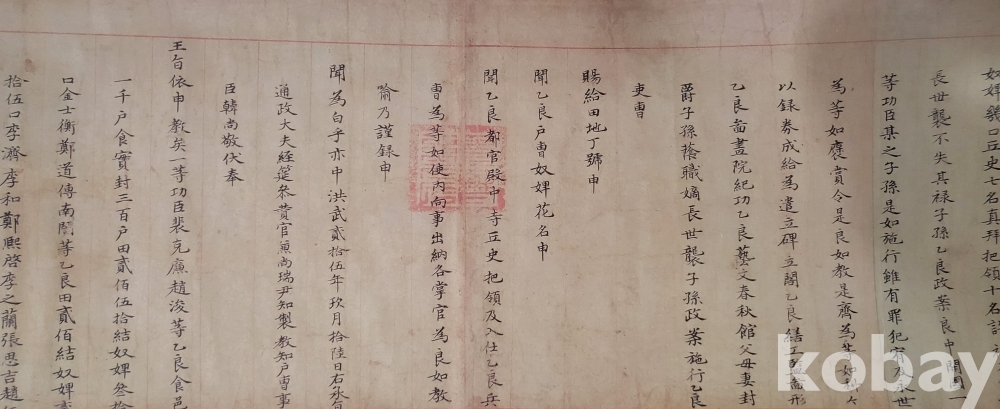 奴婢 口丘史七名真拜把領十名許
長世襲不失其禄子孫乙良政案良中開國一
等功臣某之子孫是如施行雖有罪犯宥及永世
為等如褒賞令是良如教是齊為等如
以録券成給為遣立碑立閣乙良繕工
乙良啚畫院紀功乙良藝文春秋館父母妻封
爵子孫蔭職嫡長世襲子孫政案施行乙良
吏曹
賜給田地丁號申
聞乙良戶曹奴婢花名申
聞乙良都官殿中寺丘史把領及入仕乙良兵
曹為等如使内向事出納各掌官為良如教
喻乃謹録申
聞為白乎亦中洪武貳拾伍年玖月拾陸日右承旨
通政大夫経筵叅賛官兼尚瑞尹知製教知戶曹事
臣韓尚敬伏奉
王旨依申教矣一等功臣裴克廉趙浚等乙良食邑
一千戶食實封三百戶田貳佰伍拾結奴婢叄拾
口金士衡鄭道傳南誾等乙良田貳佰結奴婢貳
拾伍口李濟李和鄭熙啓李之蘭張思吉趙
kobay